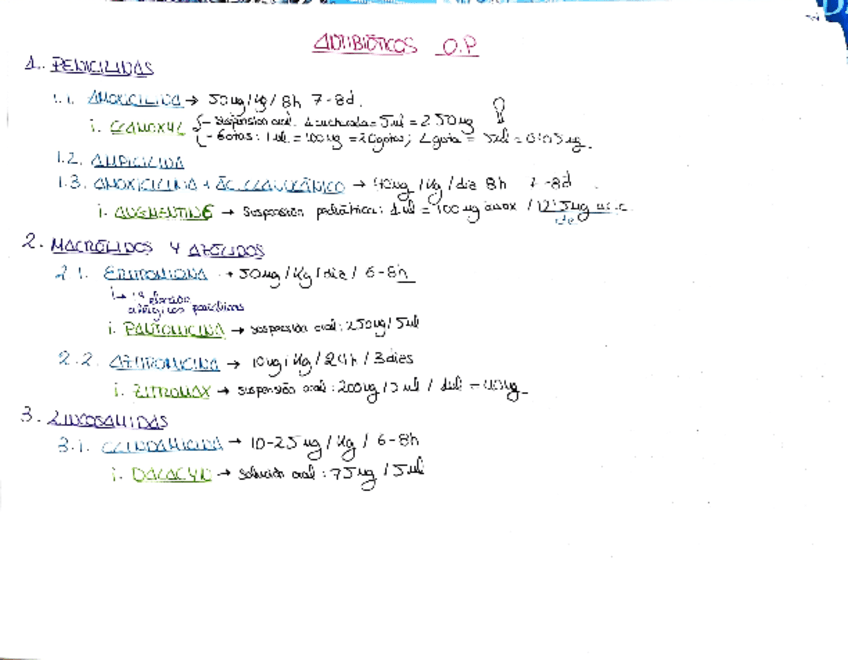 ANTIBIÓTICOS O.P
1. PENICILINAS
1.1. AMOXICILINA → 50mg/kg/8h 7-8d.
i. CLAMOXYL - Suspensión oral: 1 cucharada = 5ml = 250mg
- Gotas: 1ml = 100mg = 20gotas; 1 gota =
1.2. AMPICILINA
1.3. AMOXICILINA + ÁC. CLAVULÁNICO → 40mg/kg/dia 8h 7-8d
i. AUGMENTINE → Suspensión pediátrica: 1ml = 100mg amox / 12'5mg ac. c.
2. MACRÓLIDOS Y AZÁLIDOS
2.1. ERITROMICINA → 50mg/kg/dia/ 6-8h
→ 1ª elección
alérgicos penicilinas
i. PANTOMICINA → suspensión oral: 250mg/5ml
2.2. AZITROMICINA → 10mg/kg/24h/3dies
i. ZITROMAX → suspensão oral: 200mg/5ml / 1ml = 40mg
3. LINCOSAMIDAS
3.1. CLINDAMICINA → 10-25mg/kg/ 6-8h
i. DALACIN → solución oral: 75mg/5ml